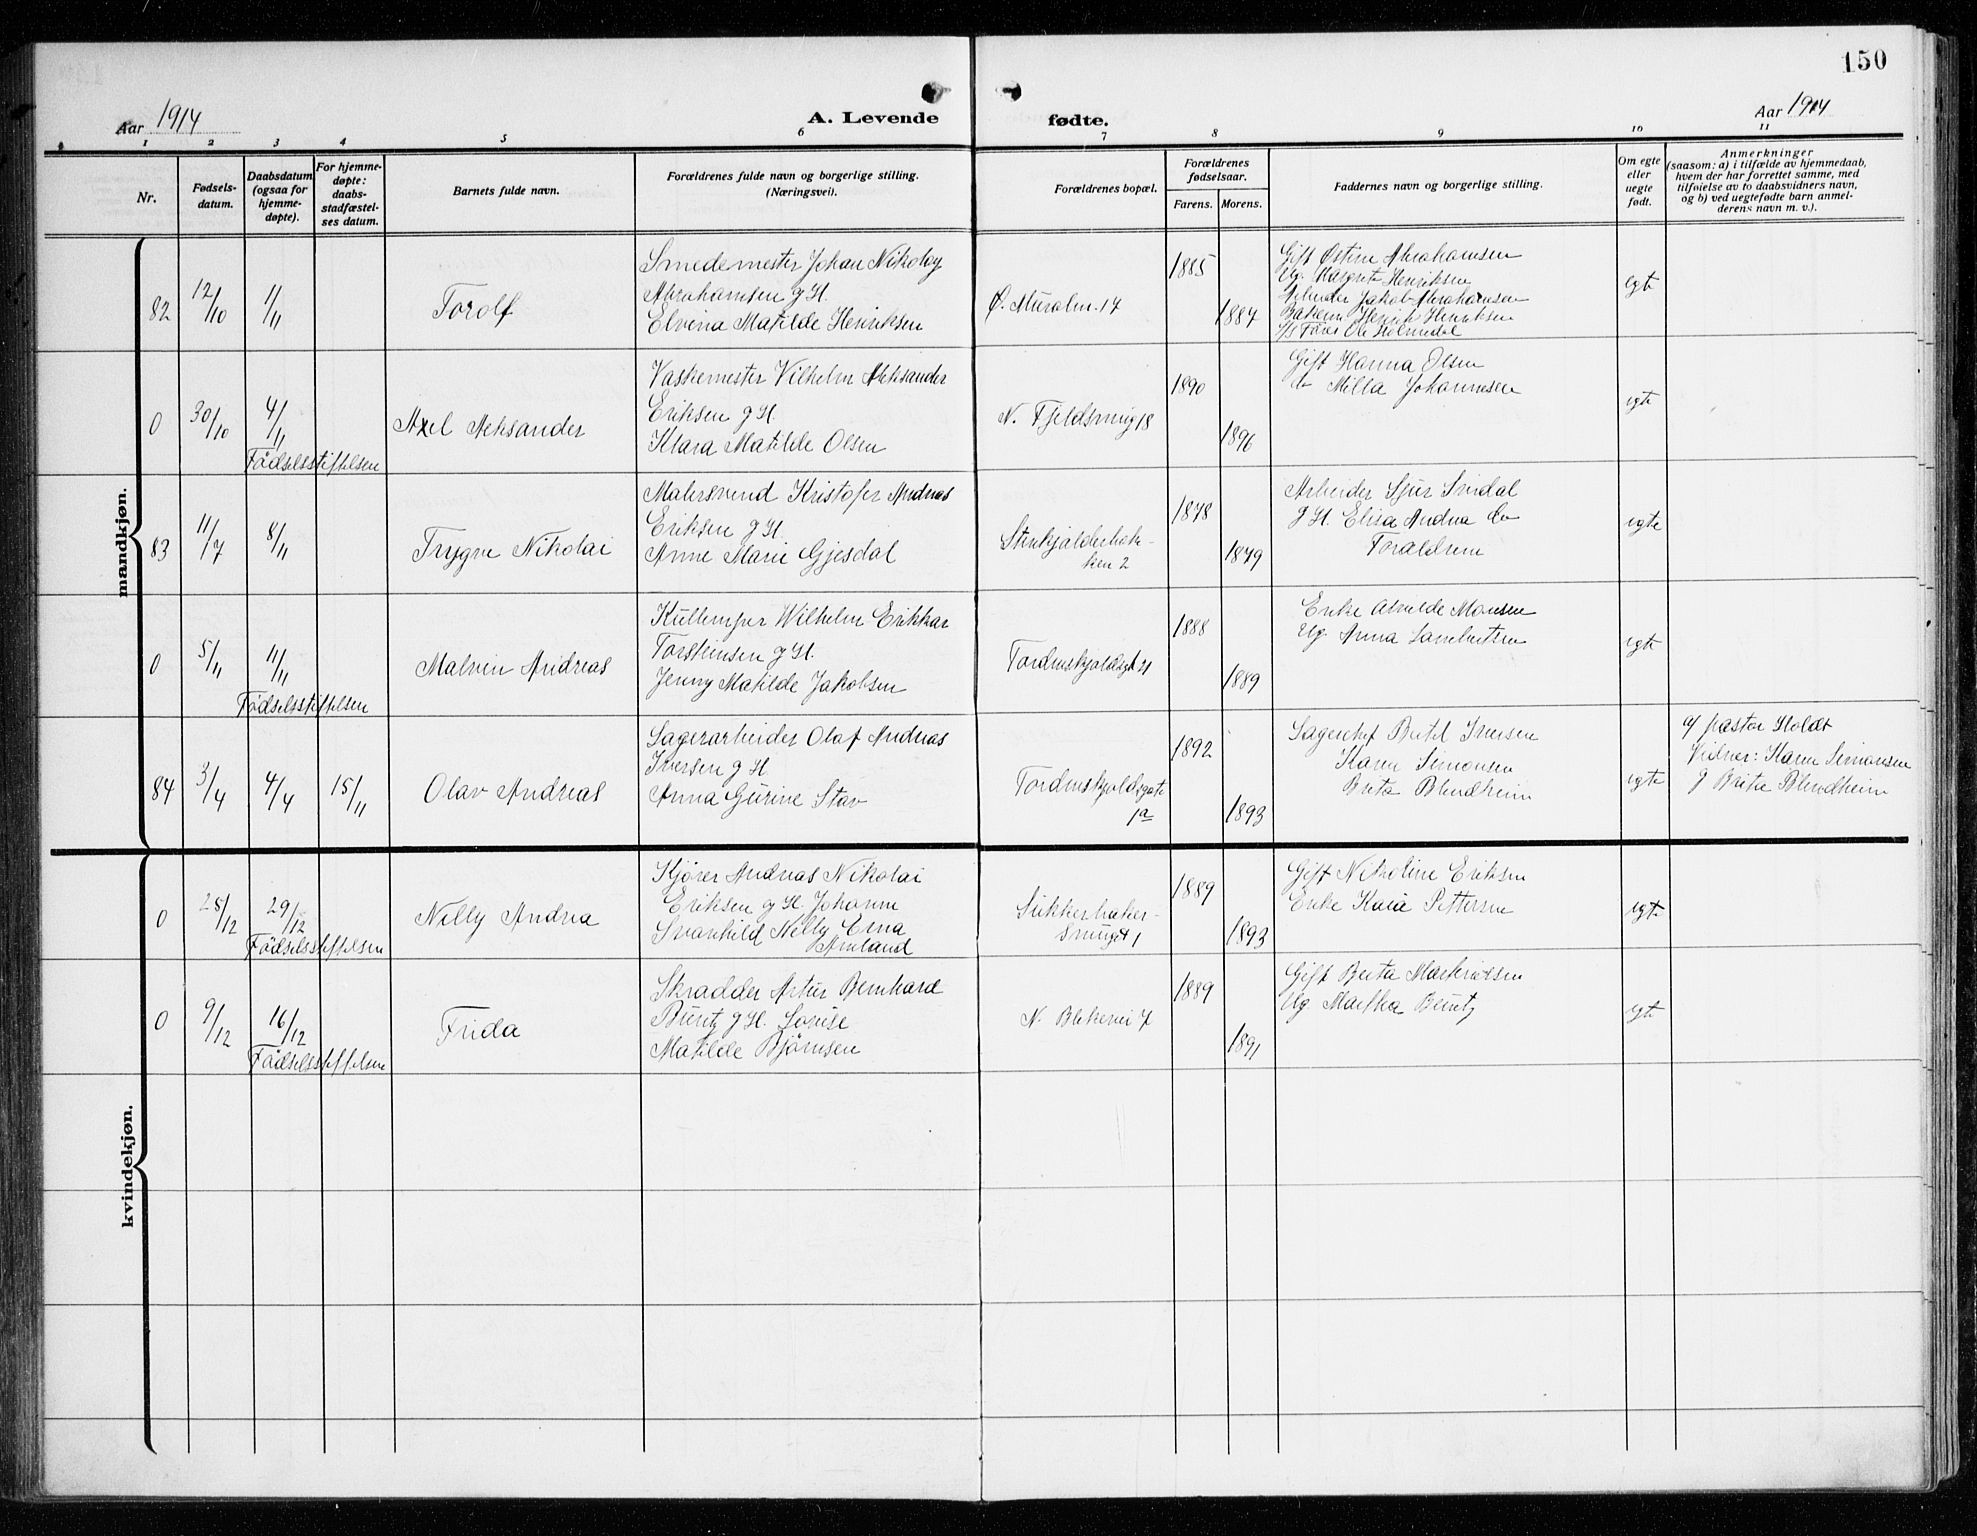 150
Aar 1914
A. Levende fødte.
Aar 1914
1 2 3 4 5 6 7 8 9 10 11
Nr.
Fødsels-
datum.
Daabsdatum
(ogsaa for
hjemme-
døpte).
For hjemme-
døpte:
daabs-
stadfæstel-
ses datum.
Barnets fulde navn.
Forældrenes fulde navn og borgerlige stilling.
(Næringsvei).
Forældrenes bopæl.
Forældrenes
fødselsaar.
Farens. Morens.
Faddernes navn og borgerlige stilling.
Om egte
eller
uegte
født.
Anmerkninger
(saasom: a) i tilfælde av hjemmedaab,
hvem der har forrettet samme, med
tilføielse av to daabsvidners navn,
og b) ved uegtefødte barn anmel-
derens navn m. v.).
mandkjøn.
82
12/10
1/11
Torolf
Smedemester Johan Nikolay
Abrahamsen g H.
Elvina Matilde Henriksen
Ø. Muralm. 17
1885
1884
Gift Østine Abrahamsen
Ug. Margrete Henriksen
Jakob Abrahamsen
Henrik Henriksen
Ole Holmedal
egte
0
30/10
4/11
Fødselsstiftelsen
Axel Aleksander
Vaskemester Vilhelm Aleksander
Eriksen g H
Klara Matilde Olsen
N. Fjeldsmug 18
1890
1896
Gift Hanna Olsen
do Milla Johannesen
egte
83
11/7
8/11
Trygve Nikolai
Malersvend Kristofer Andreas
Eriksen g H.
Anne Marie Gjesdal
Stenkjælderbak-
ken 2
1878
1879
Arbeider Sjur
g H. Elisa Andrea do
Forældrene
egte
0
5/11
11/11
Fødselsstiftelsen
Malvin Andreas
Kullemper Wilhelm Erikkar
Torsteinsen g H.
Jenny Matilde Jakobsen
Tordenskjoldsgt 21
1888
1889
Enke Alvilde Monsen
Ug. Anna Lambertsen
egte
84
3/4
4/4
15/11
Olav Andreas
Sagerarbeider Olaf Andreas
Iversen g H
Anna Gurine Stav
Tordenskjoldsgate
1a
1892
1893
Bertil Iversen
Karen Simonsen
Brita Blendheim
egte
a/ pastor Holdt
Vidner: Karen Simonsen
g Brita Blendheim
kvindekjøn.
0
25/12
29/12
Fødselsstiftelsen
Nelly Andrea
Kjører Andreas Nikolai
Eriksen g H. Johanne
Svanhild Nelly Erna
Amland
Sukkerbaker-
smuget 1
1889
1893
Gift Nikoline Eriksen
Enke Kaia Pettersen
egte
0
9/12
16/12
Fødselsstiftelsen
Frida
Skrædder Artur Bernhard
Buntz g H. Lovise
Matilde Bjørnsen
N. Blekevei 7
1889
1891
Gift Berta Martinsen
Ug. Martha Buntz
egte